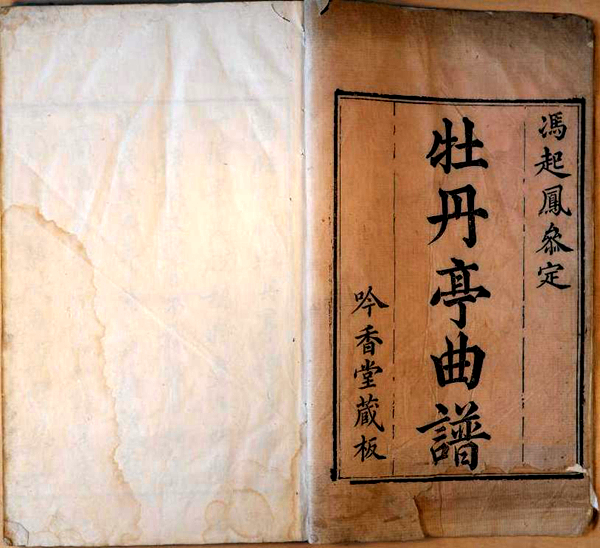 馮起鳳叅定
牡丹亭曲譜
吟香堂藏板